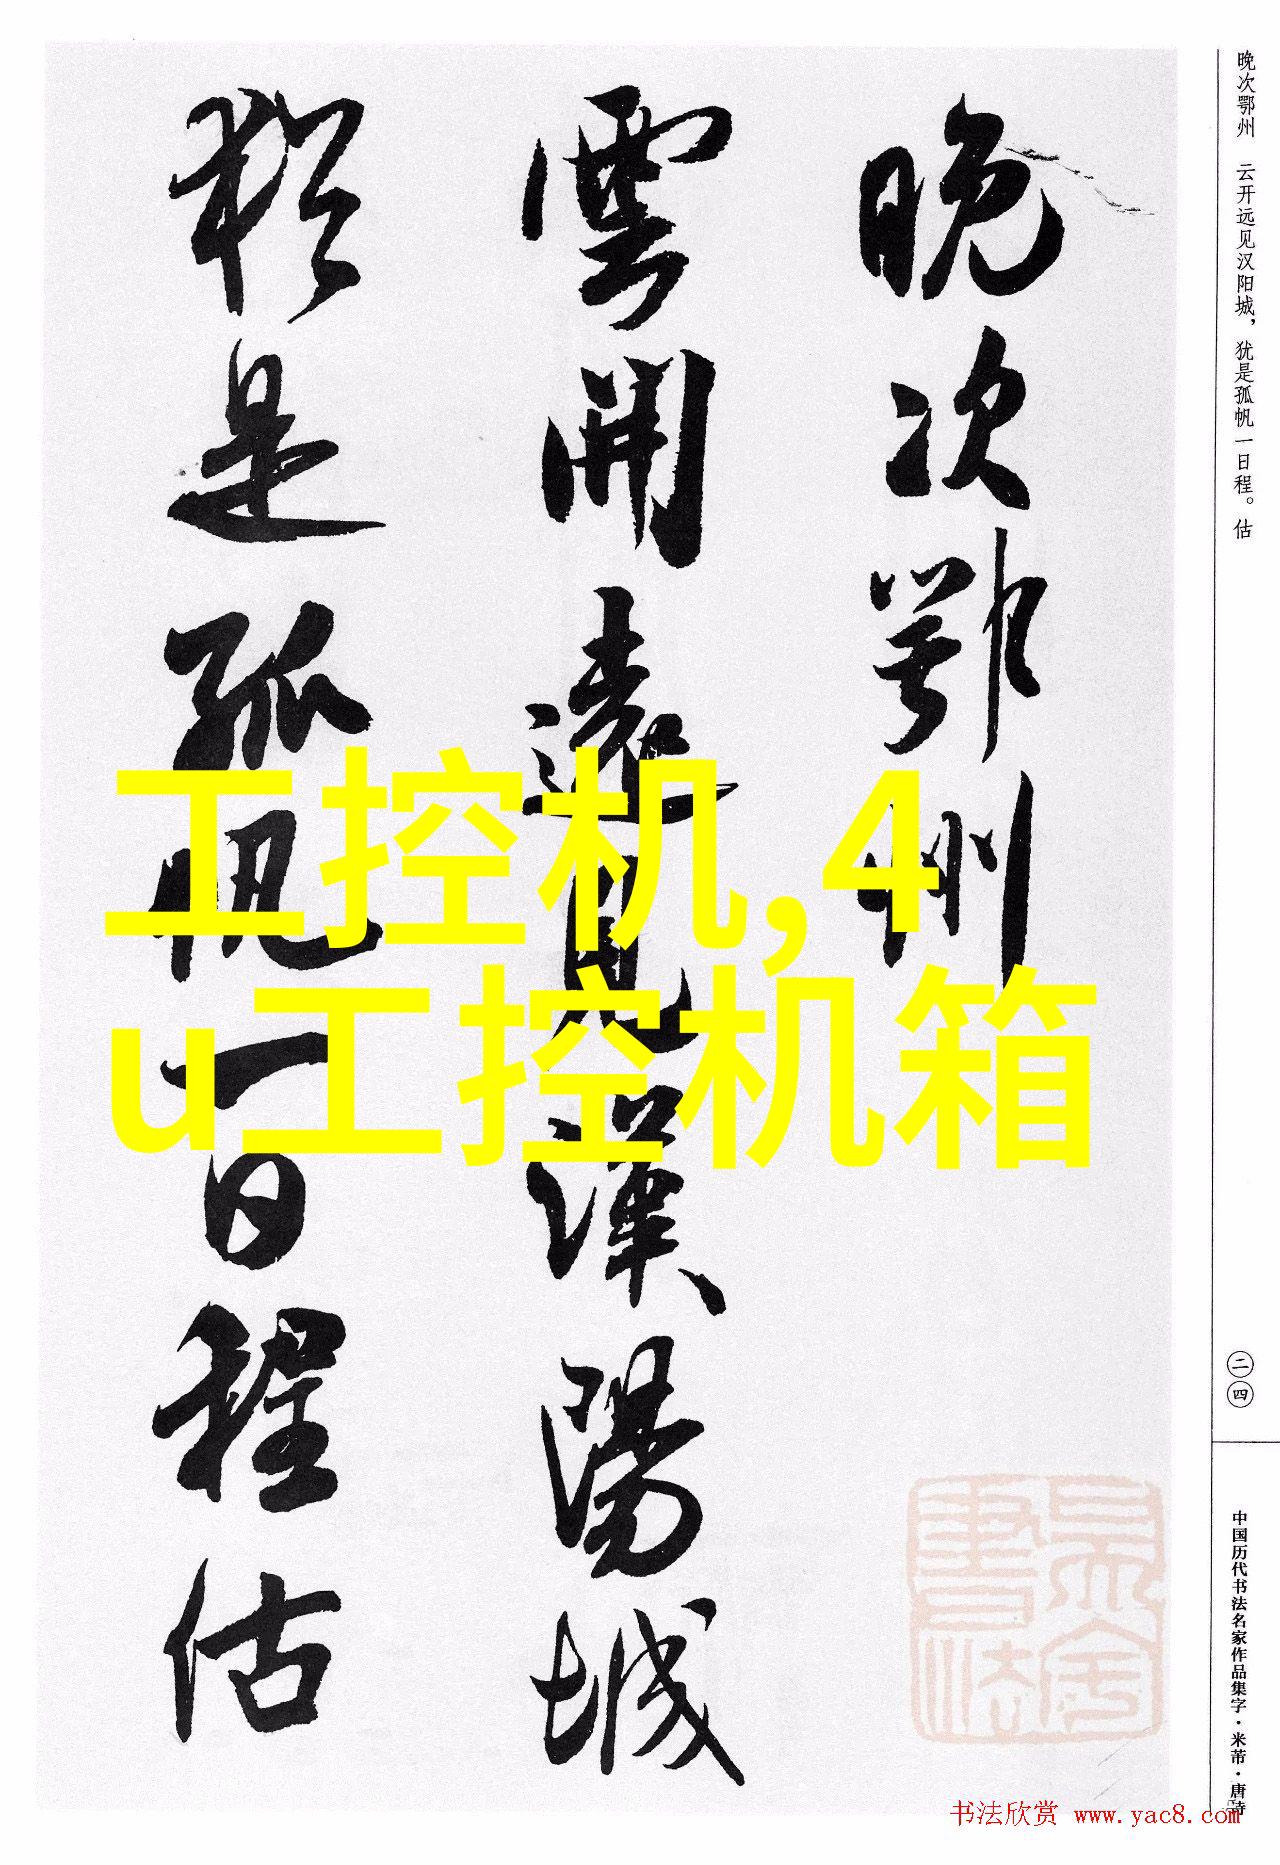 晚次鄂州　云开远见汉阳城，犹是孤帆一日程。估
晚次鄂州
雲開遠見漢陽城
猶是孤帆一日程估
工控机,4
u工控机箱
二四
中国历代书法名家作品集字·米芾·唐诗
吴舍
書法
书法欣赏 www.yac8.com